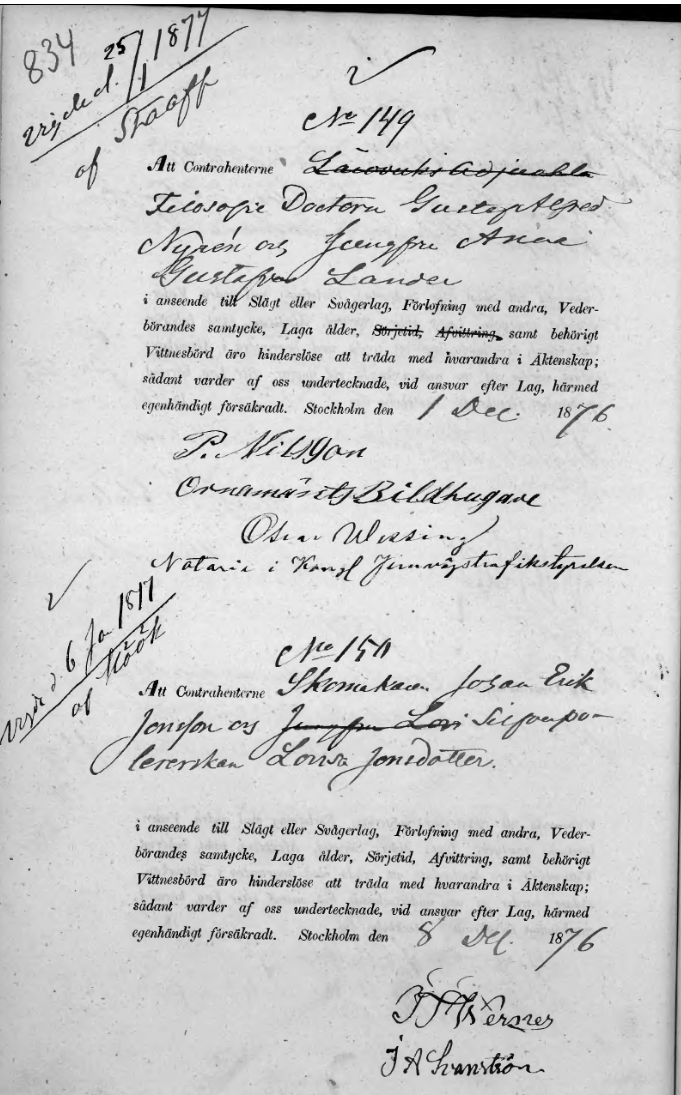 834
Vigde d. 25/1 1877
af Staaff
No 149
Att Contrahenterne Läroverks Adjunkten
Filosofie Doctorn Gustaf Alfred
Nyrén och Jungfru Anna
Gustafva Lander
i anseende till Slägt eller Svågerlag, Förlofning med andra, Veder-
börandes samtycke, Laga ålder, Sörjetid, Afvittring, samt behörigt
Vittnesbörd äro hinderslöse att träda med hvarandra i Äktenskap;
sådant varder af oss undertecknade, vid ansvar efter Lag, härmed
egenhändigt försäkradt. Stockholm den 1 Dec. 1876.
P. Nilsson
Ornamänts Bildhugare
Oscar Wessing
Notarie i Kongl Jernvägstrafikstyrelsen
Vigde d. 6 Jan 1877
af Höök
No 150
Att Contrahenterne Skomakaren Johan Erik
Jonsson och Jungfru Lovi Silfverpo-
lererskan Lovisa Jonsdotter.
i anseende till Slägt eller Svågerlag, Förlofning med andra, Veder-
börandes samtycke, Laga ålder, Sörjetid, Afvittring, samt behörigt
Vittnesbörd äro hinderslöse att träda med hvarandra i Äktenskap;
sådant varder af oss undertecknade, vid ansvar efter Lag, härmed
egenhändigt försäkradt. Stockholm den 8 Dec. 1876
Werner
J A Svanström